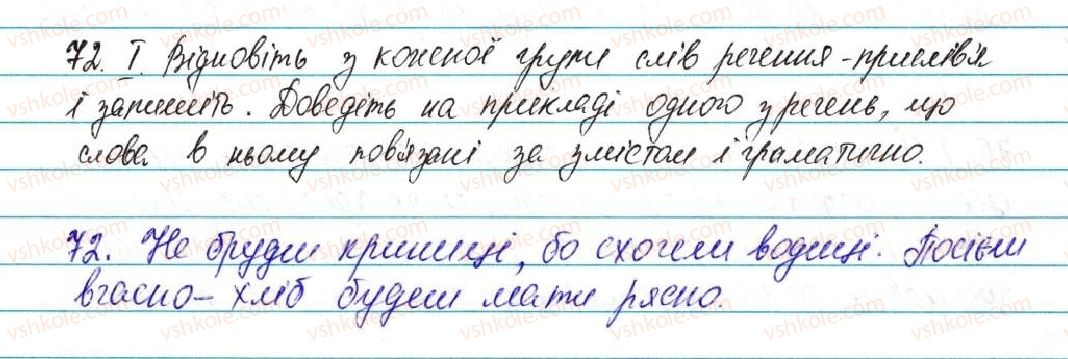 72. I. Відновіть з кожної групи слів речення-прислів'я
і запишіть. Доведіть на прикладі одного з речень, що
слова в ньому пов'язані за змістом і граматично.
72. Не бруди криниці, бо схочеш водиці. Посієш
вчасно – хліб будеш мати рясно.